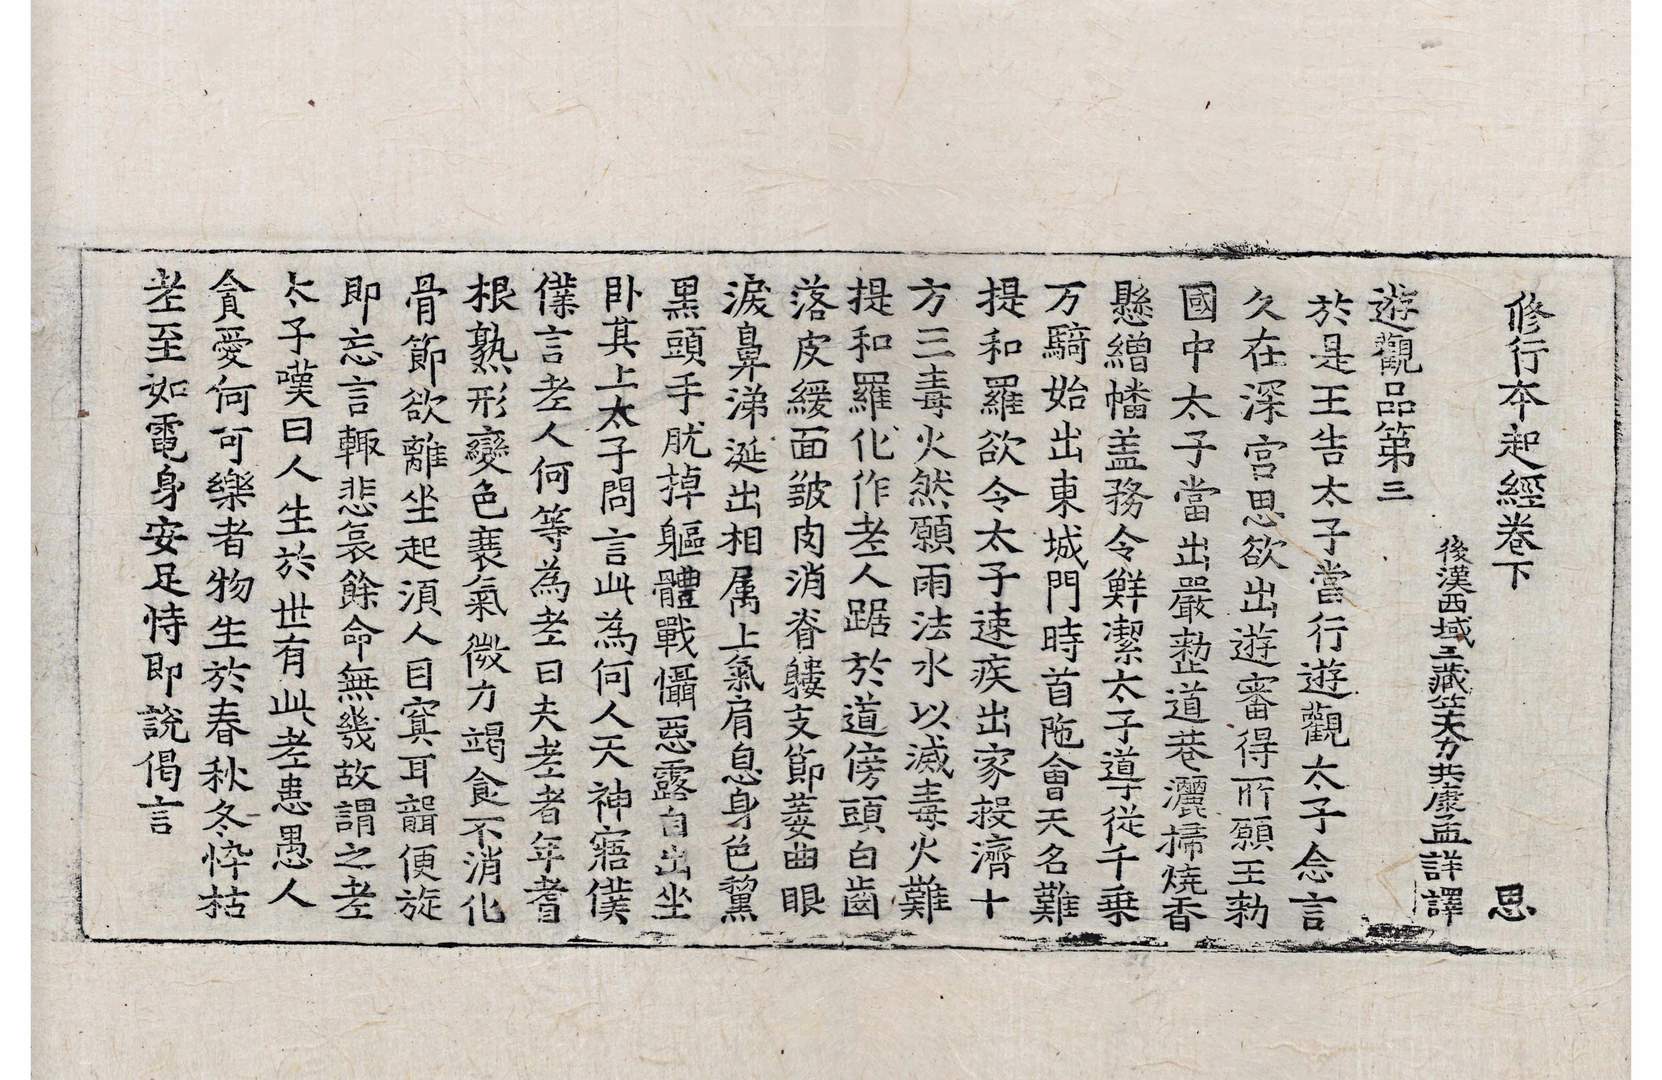 修行本起經卷下 思
後漢西域三藏竺大力共康孟詳譯
遊觀品第三
於是王告太子當行遊觀太子念言
久在深宮思欲出遊審得所願王勑
國中太子當出嚴勑道巷灑掃燒香
懸繒幡盖務令鮮潔太子導從千乗
万騎始出東城門時首陁會天名難
提和羅欲令太子速疾出家救濟十
方三毒火然願雨法水以滅毒火難
提和羅化作老人踞於道傍頭白齒
落皮緩面皺肉消脊僂支節萎曲眼
淚鼻涕涎出相属上氣肩息身色黧
黒頭手胧掉軀體戰懾惡露自出坐
卧其上太子問言此為何人天神寤僕
僕言老人何等為老曰夫老者年耆
根熟形變色衰氣微力竭食不消化
骨節欲離坐起湏人目冥耳聾便旋
即忘言輙悲哀餘命無幾故謂之老
太子嘆曰人生於世有此老患愚人
貪愛何可樂者物生於春秋冬悴枯
老至如電身安足恃即說偈言